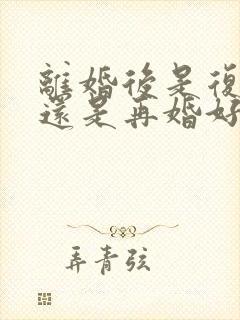 離婚後是復
還是再婚好
弄青弦